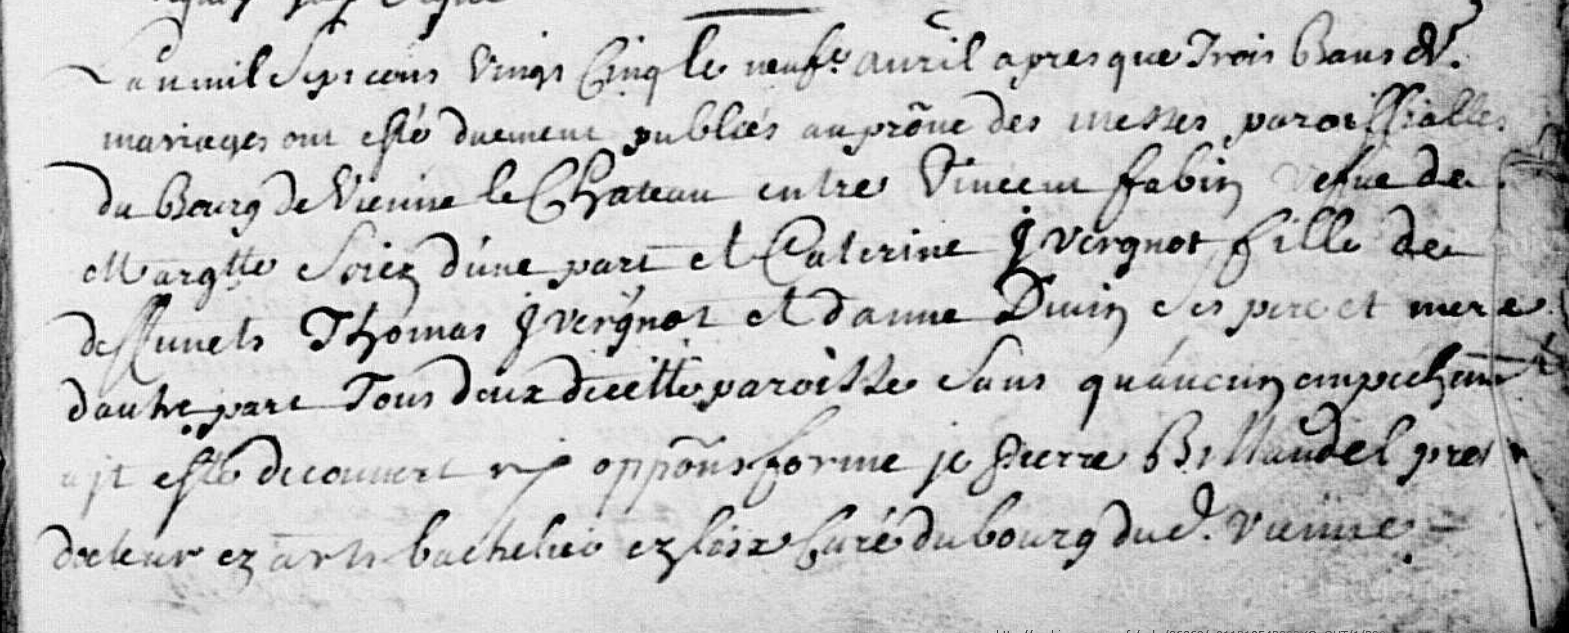 Lan mil Sept cens Vingt Cinq le neufe. auuril apres que Trois Bans de
mariages ont esté duement publiés au prône des messes paroissialles
du Bourg de Vienne le Chateau entre Vincent fabin vefue de
Margtte Soiez d'une part et Caterine Jvergnot fille de
deffunets Thomas Jvergnot et danne Divin ses pere et mere
dautre part Tous deux de cette paroisse Sans qu'aucun empechemt
ait esté decouvert ny oppons forme je Pierre Billaudel pret
docteur ez arts bachelier ez loix Curé du bourg dud. Vienne